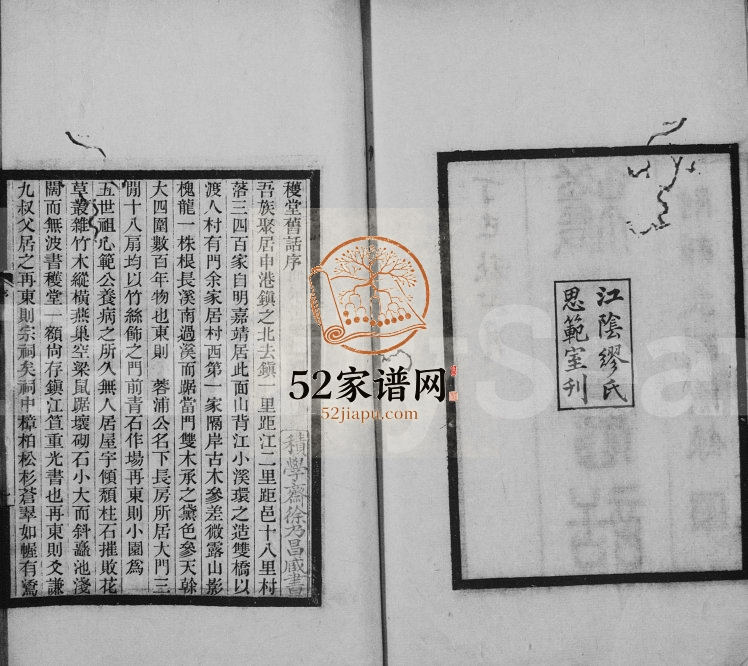 江陰繆氏
思範室刊
穫堂舊話序
吾族聚居申港鎮之北去鎮一里距江二里距邑十八里村
落三四百家自明嘉靖居此面山背江小溪環之造雙橋以
渡人村有門余家居村西第一家隔岸古木參差微露山影
槐龍一株根長溪南過溪而踞當門雙木承之黛色參天榦
大四圍數百年物也東則 蓉浦公名下長房所居大門三
閒十八扇均以竹絲飾之門前青石作場再東則小園為
五世祖心範公養病之所久無人居屋宇傾頹柱石摧敗花
草叢雜竹木縱橫燕巢空梁鼠踞壞砌石小大而斜矗池淺
闊而無波書穫堂一額尙存鎮江笪重光書也再東則爻謙
九叔父居之再東則宗祠矣祠中樟柏松杉蒼翠如幄有鶱
積學齋徐乃昌藏書
52家谱网
52jiapu.com